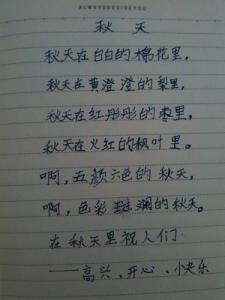 秋天
秋天在白白的棉花里，
秋天在黄澄澄的梨里，
秋天在红彤彤的枣里，
秋天在火红的枫叶里。
啊，五颜六色的秋天，
啊，色彩斑斓的秋天。
在秋天里祝人们
——高兴、开心、小快乐